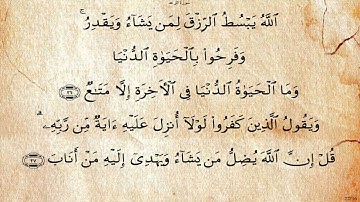 اللَّهُ يَبْسُطُ الرِّزْقَ لِمَن يَشَاءُ وَيَقْدِرُ ۚ
وَفَرِحُوا۟ بِالْحَيَوٰةِ الدُّنْيَا
وَمَا الْحَيَوٰةُ الدُّنْيَا فِى الْـَٔاخِرَةِ إِلَّا مَتَـٰعٌ ٢٦
وَيَقُولُ الَّذِينَ كَفَرُوا۟ لَوْلَآ أُنزِلَ عَلَيْهِ ءَايَةٌ مِّن رَّبِّهِۦ ۗ
قُلْ إِنَّ اللَّهَ يُضِلُّ مَن يَشَاءُ وَيَهْدِىٓ إِلَيْهِ مَنْ أَنَابَ ٢٧